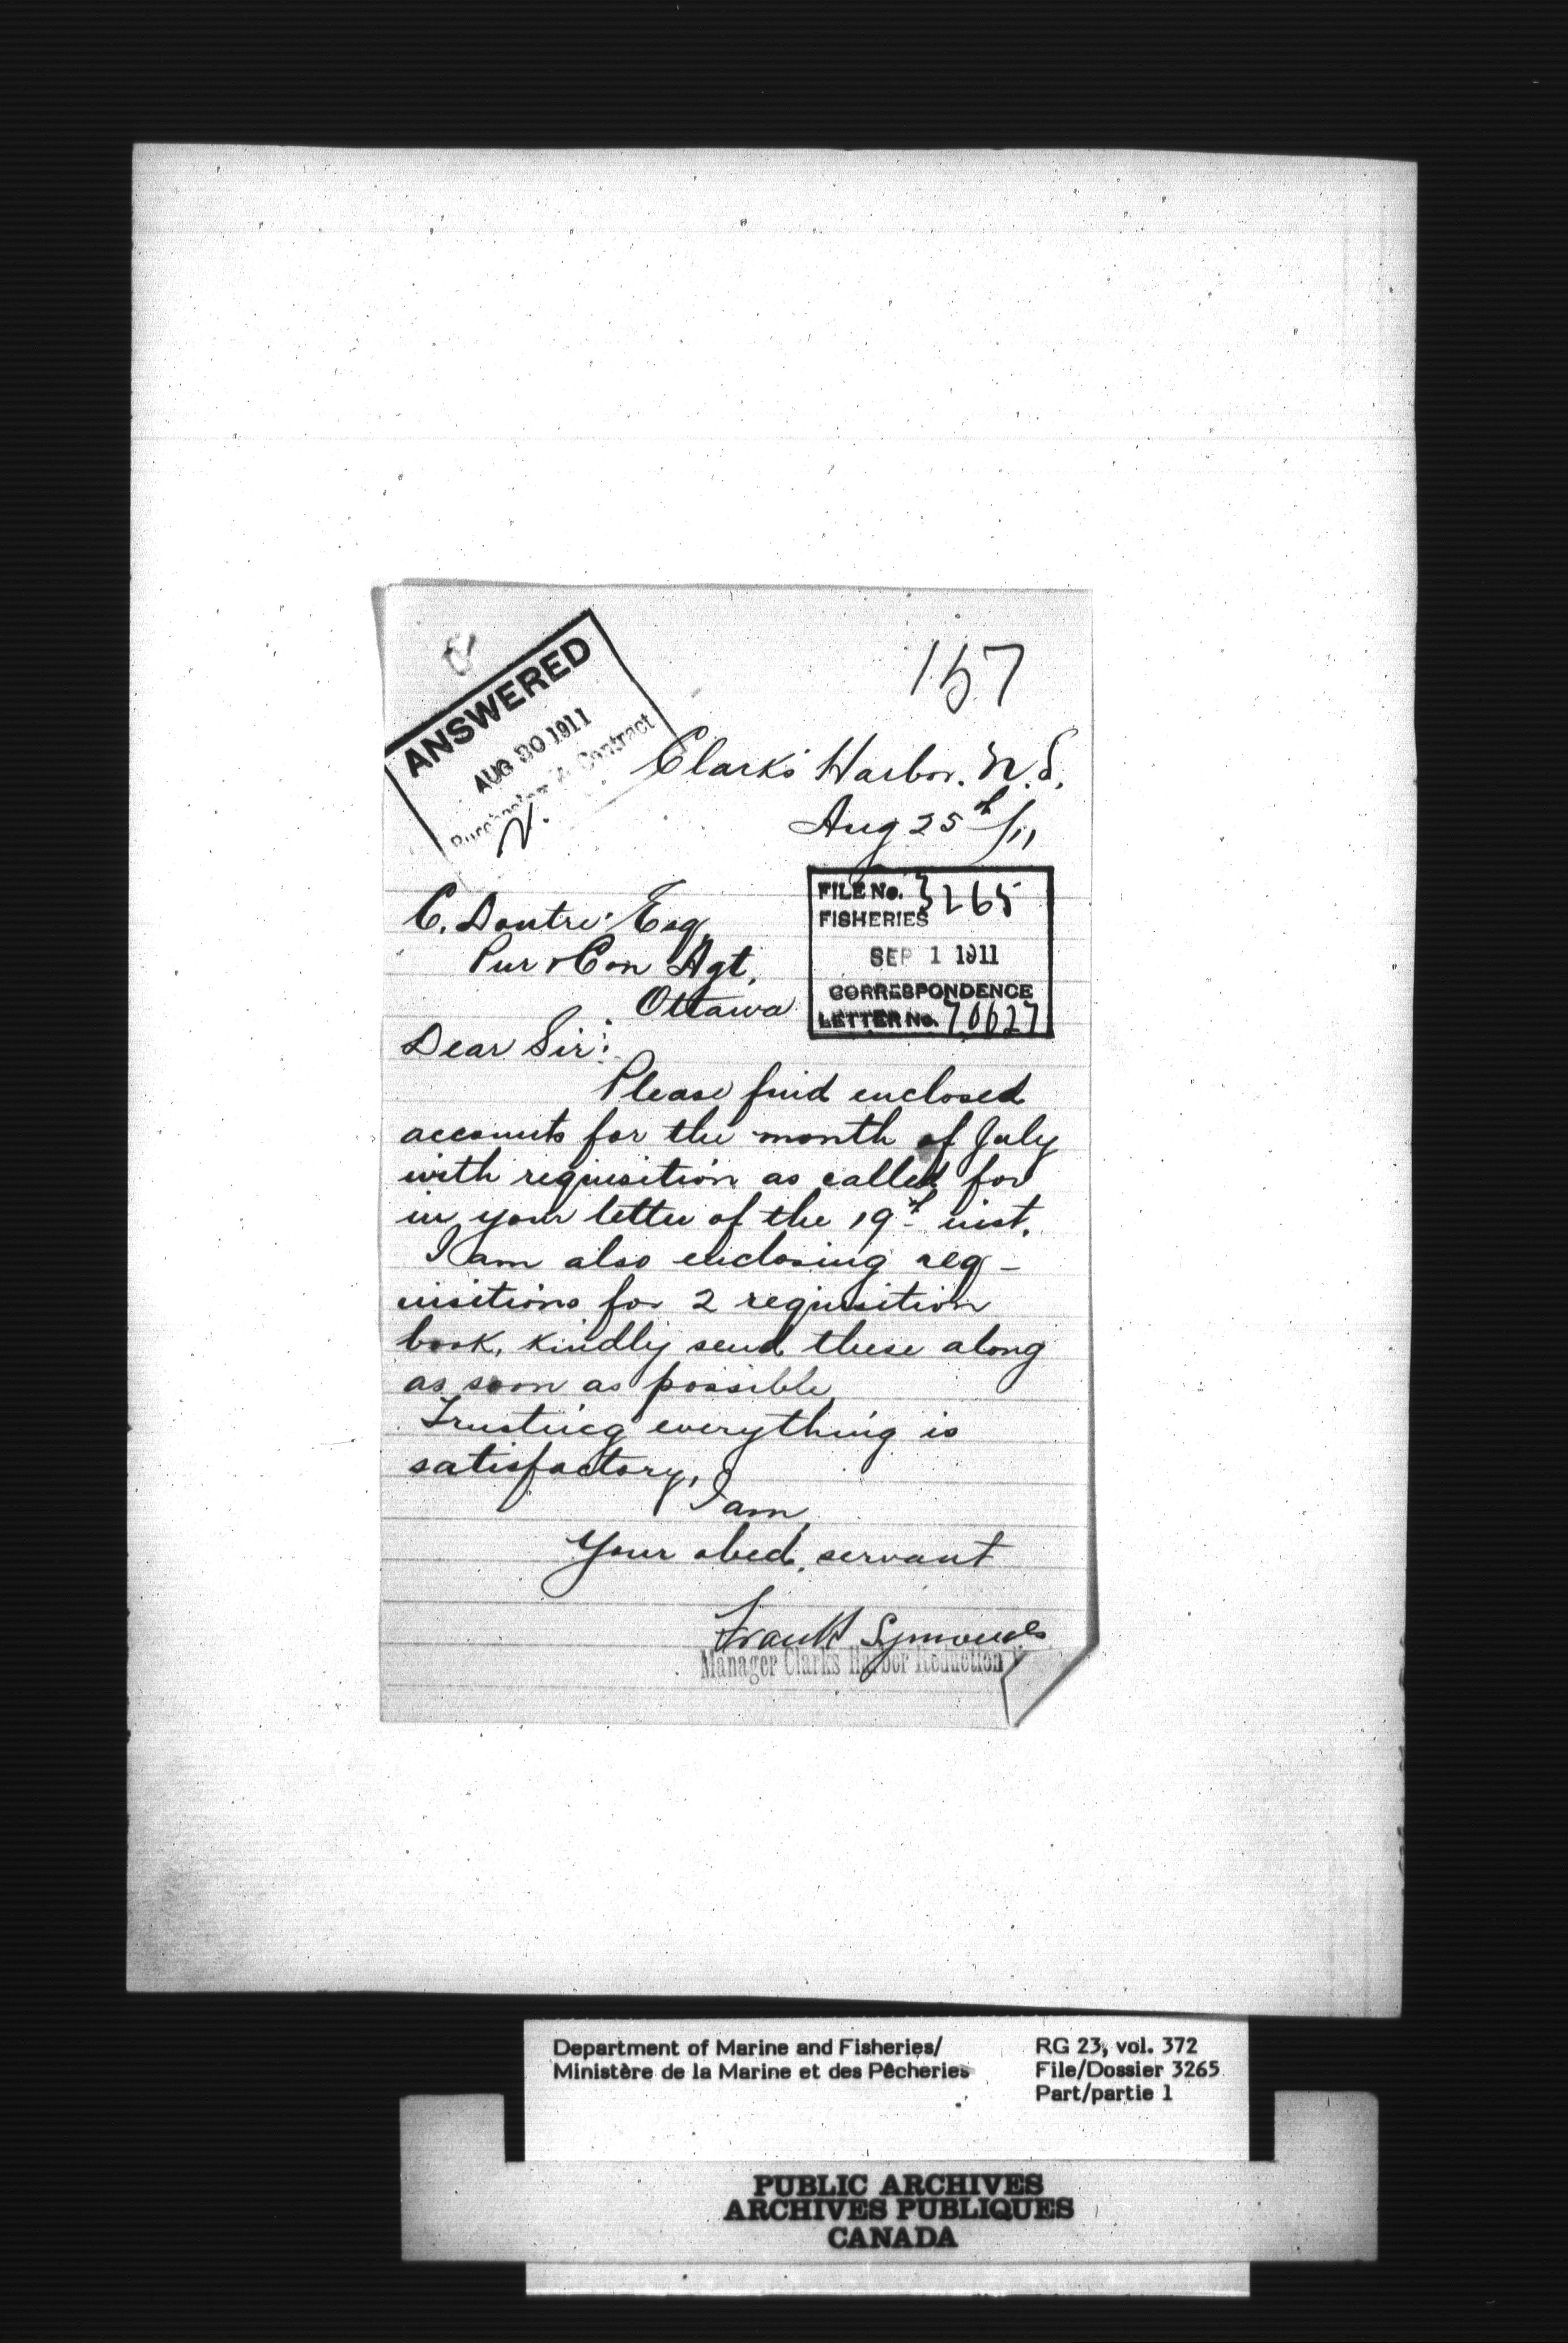 157
ANSWERED
AUG 30 1911
Purchasing & Contract
Clark's Harbor. N.S.
Aug 25th/11
FILE No. 3265
FISHERIES
SEP 1 1911
CORRESPONDENCE
LETTER No. 70627
C. Doutre Esq.
Pur & Con Agt.
Ottawa
Dear Sir:
Please find enclosed
accounts for the month of July
with requisition as called for
in your letter of the 19th inst.
I am also enclosing req-
uisitions for 2 requisition
book, kindly send these along
as soon as possible.
Trusting everything is
satisfactory,
I am,
Your obed. servant
Frank Symonds
Manager Clarks Harbor Reduction
Department of Marine and Fisheries/
Ministère de la Marine et des Pêcheries
RG 23, vol. 372
File/Dossier 3265
Part/partie 1
PUBLIC ARCHIVES
ARCHIVES PUBLIQUES
CANADA